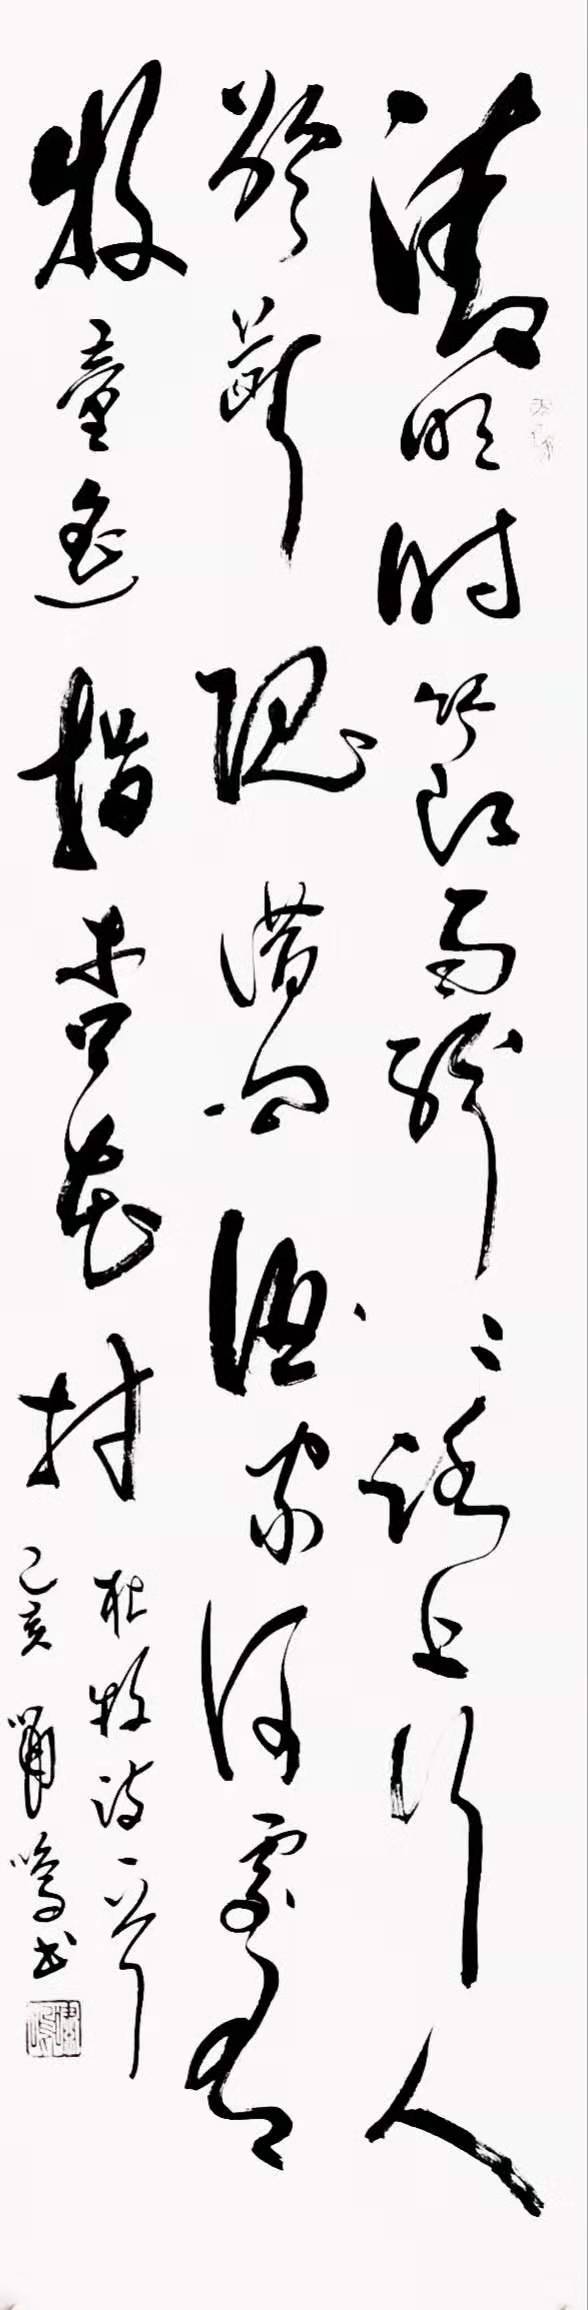 清明时节雨纷々路上行人
欲断魂借问酒家何處有
牧童遥指杏花村
杜牧诗一
己亥 啸鸣书